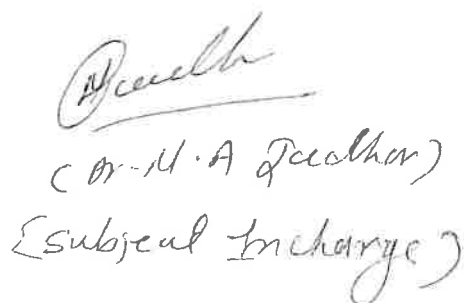 (Dr. M. A Jadhav)
[Subject Incharge]